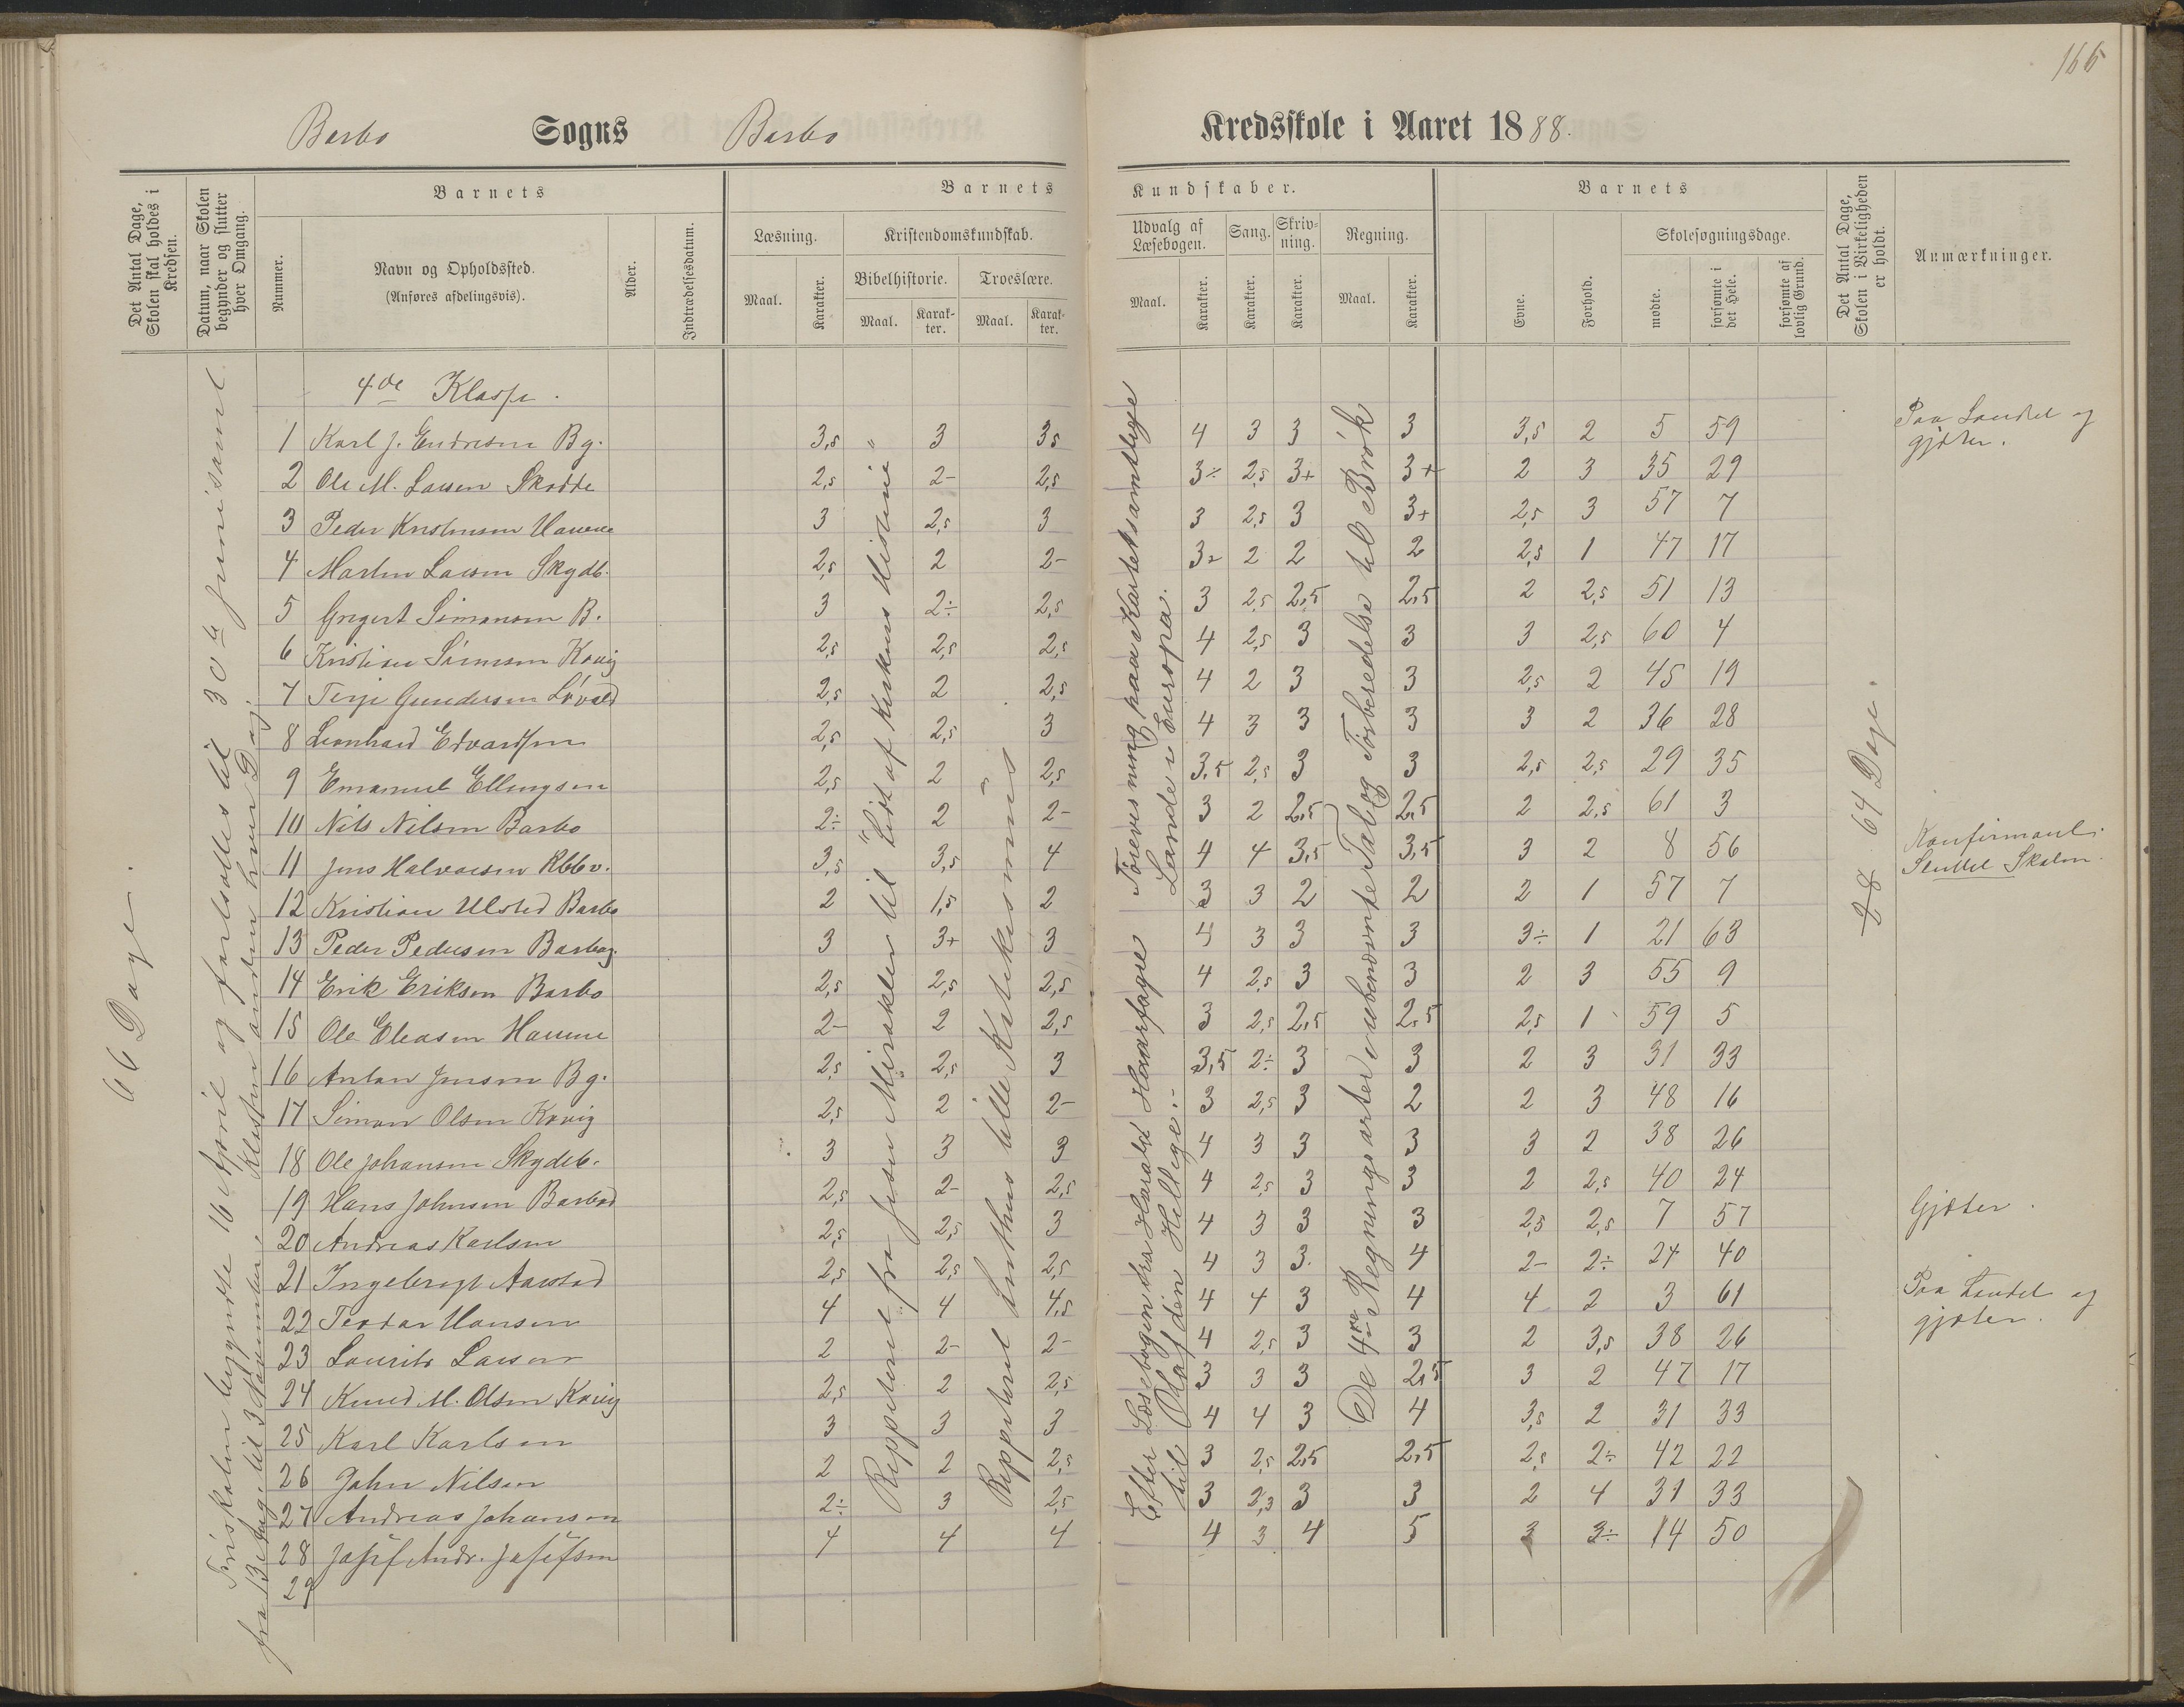 166
Barbo Sogns Barbo Kredsskole i Aaret 1888.
Det Antal Dage, Skolen skal holdes i Kredsen.
Datum, naar Skolen begynder og slutter hver Omgang.
Barnets
Nummer.
Navn og Opholdssted.
(Anføres afdelingsvis).
Alder.
Indtrædelsesdatum.
Barnets Kundskaber.
Læsning.
Maal.
Karakter.
Kristendomskundskab.
Bibelhistorie.
Maal.
Karakter.
Troeslære.
Maal.
Karakter.
Udvalg af Læsebogen.
Maal.
Karakter.
Sang.
Karakter.
Skrivning.
Karakter.
Regning.
Maal.
Karakter.
Barnets
Evne.
Forhold.
Skolesøgningsdage.
mødte.
forsømte i det Hele.
forsømte af lovlig Grund.
Det Antal Dage, Skolen i Virkeligheden er holdt.
Anmærkninger.
66 Dage.
16 April og fortsattes til 30te Juni samt
fra 13 Aug. til 3 November. Klassen anden hver Dag.
Reppeteret fra Jesu Mirakler til "Lidt af Kirkens Historie"
Reppeteret Luthers lille Katekismus
Efter Læsebogen fra Harald Haarfagre til Olaf den Hellige.
Forevisning paa Kartet samtlige Lande i Europa.
De 4re Regningsarter i ubenævnte Tal og Forberedelse til Brøk
28 64 Dage.
4de Klasse.
1 Karl J. Endresen Bg. 3,5 " 3 3,5 4 3 3 3 3,5 2 5 59 Paa Landet og gjæter.
2 Ole M. Larsen Skodde 2,5 2- 2,5 3÷ 2,5 3+ 3+ 2 3 35 29
3 Peder Kristensen Hauene 3 2,5 3 3 2,5 3 3+ 2,5 3 57 7
4 Martin Larsen Skydb. 2,5 2 2- 3÷ 2 2 2 2,5 1 47 17
5 Gregert Simonsen B. 3 2÷ 2,5 3 2,5 2,5 2,5 2 2,5 51 13
6 Kristian Sørensen Kovig 2,5 2,5 2,5 4 2,5 3 3 3 2,5 60 4
7 Terje Gundersen Løvold 2,5 2 2,5 4 2 3 3 2,5 2 45 19
8 Leonhard Edvardsen 2,5 2,5 3 4 3 3 3 3 2 36 28
9 Emanuel Ellingsen 2,5 2 2,5 3,5 2,5 3 3 2,5 2,5 29 35
10 Nils Nilsen Barbo 2÷ 2 2- 3 2 2,5 2,5 2 2,5 61 3
11 Jens Halvorsen Kbbv. 3,5 3,5 4 4 4 3,5 3,5 3 2 8 56 Konfirmant. Sluttet Skolen.
12 Kristian Ulsted Barbo 2 1,5 2 3 3 2 2 2 1 57 7
13 Peder Pedersen Barbog. 3 3+ 3 4 3 3 3 3÷ 1 21 63
14 Erik Eriksen Barbo 2,5 2,5 2,5 4 2,5 3 3 2 3 55 9
15 Ole Oleasen Hauene 2- 2 2,5 3 2,5 2,5 2,5 2,5 1 59 5
16 Anton Jensen Bg. 2,5 2,5 3 3,5 2÷ 3 3 2 3 31 33
17 Simon Olsen Kovig 2,5 2 2- 3 2,5 3 2 2 3 48 16
18 Ole Johansen Skydeb. 3 3 3 4 3 3 3 3 2 38 26
19 Hans Johnsen Barbod 2,5 2- 2,5 4 2,5 3 3 2 2,5 40 24
20 Andreas Karlsen 2,5 2,5 3 4 3 3 3 2,5 2,5 7 57 Gjæter.
21 Ingebregt Aarstad 2,5 2,5 2,5 4 3 3 4 2- 2÷ 24 40
22 Teodor Hansen 4 4 4,5 4 4 3 4 4 2 3 61 Paa Landet og gjæter.
23 Laurits Larsen 2 2- 2- 4 2,5 3 3 2 3,5 38 26
24 Knud M. Olsen Kovig 2,5 2 2,5 3 3 3 2,5 3 2 47 17
25 Karl Karlsen 3 3 3 4 4 3 4 3,5 2 31 33
26 John Nilsen 2 2 2,5 3 2,5 2,5 2,5 2,5 2÷ 42 22
27 Andreas Johansen 2÷ 3 2,5 3 2,3 3 3 2 4 31 33
28 Josef Andr. Josefsen 4 4 4 4 3 4 5 3 3÷ 14 50
29